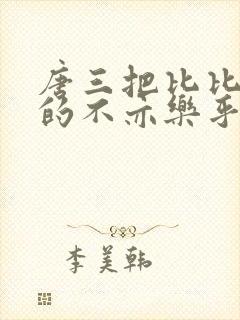 唐三把比比
的不亦樂乎
李美韩